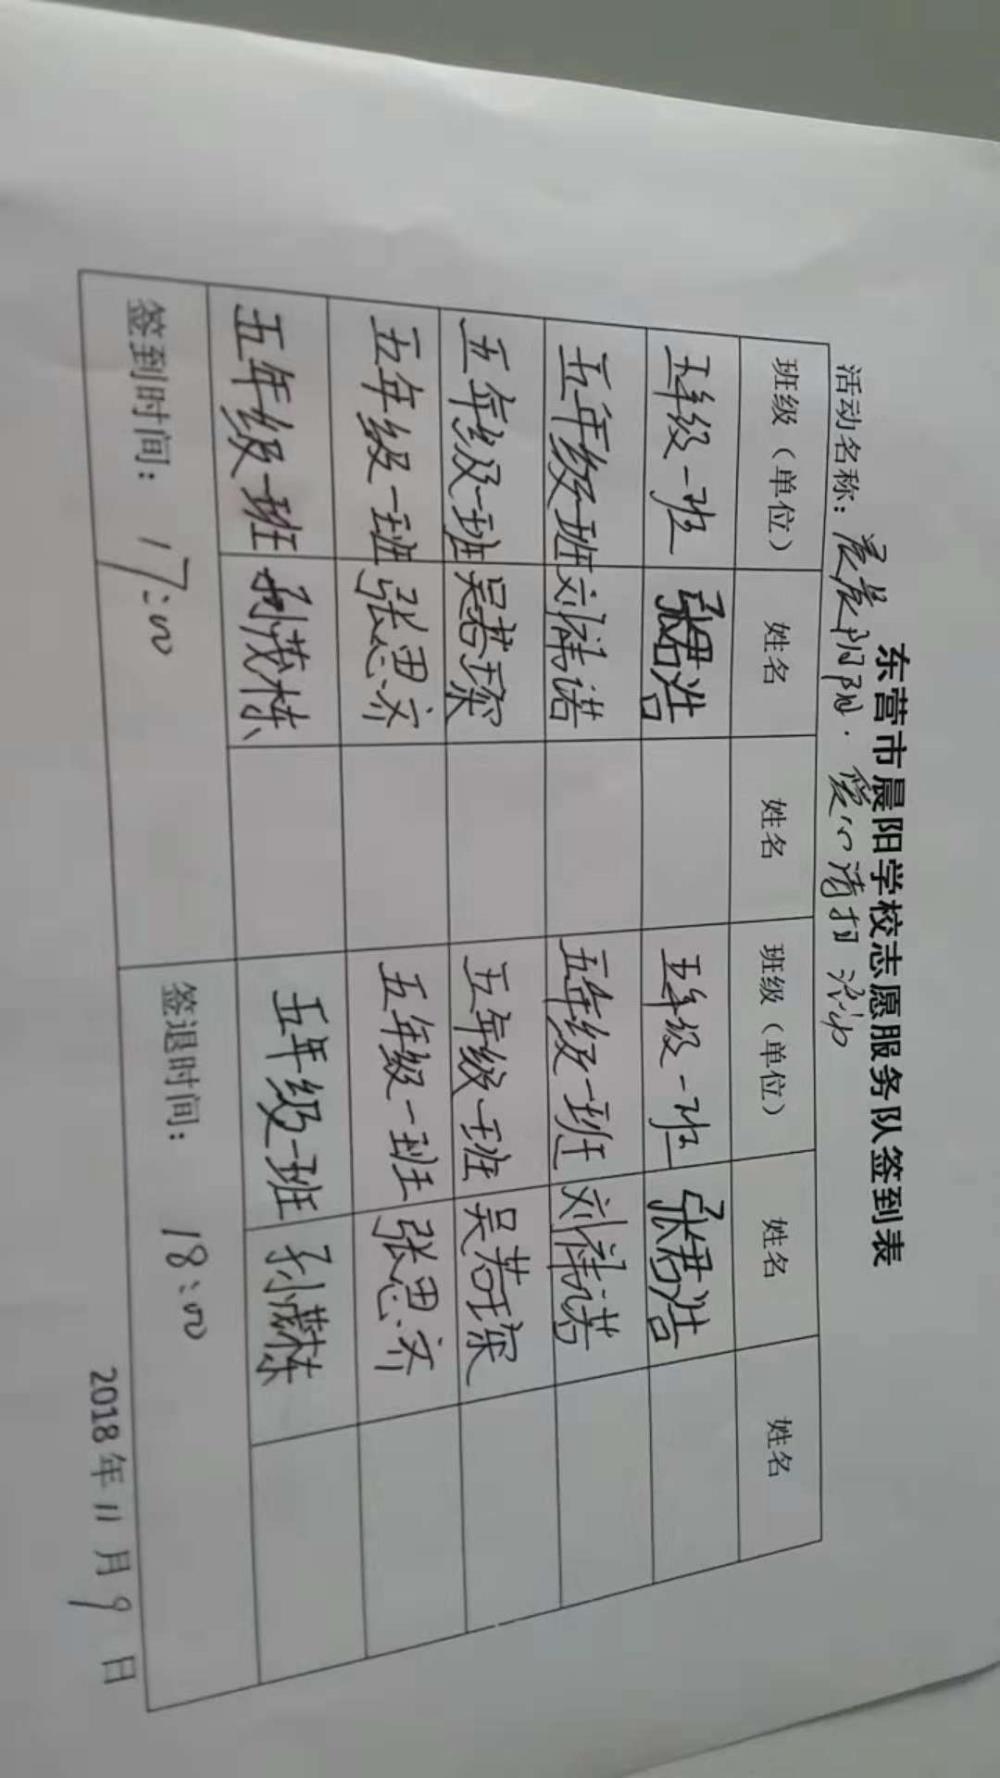 东营市晨阳学校志愿服务队签到表
活动名称：晨晨阳阳·爱心清扫活动
班级（单位） 姓名 姓名 班级（单位） 姓名 姓名
五年级一班 五年级一班
五年级一班 刘祎诺 五年级一班 刘祎诺
五年级一班 吴若琛 五年级一班 吴若琛
五年级一班 张思齐 五年级一班 张思齐
五年级一班 孙茂栋 五年级一班 孙茂栋
签到时间：17:00 签退时间：18:00
2018年11月9日